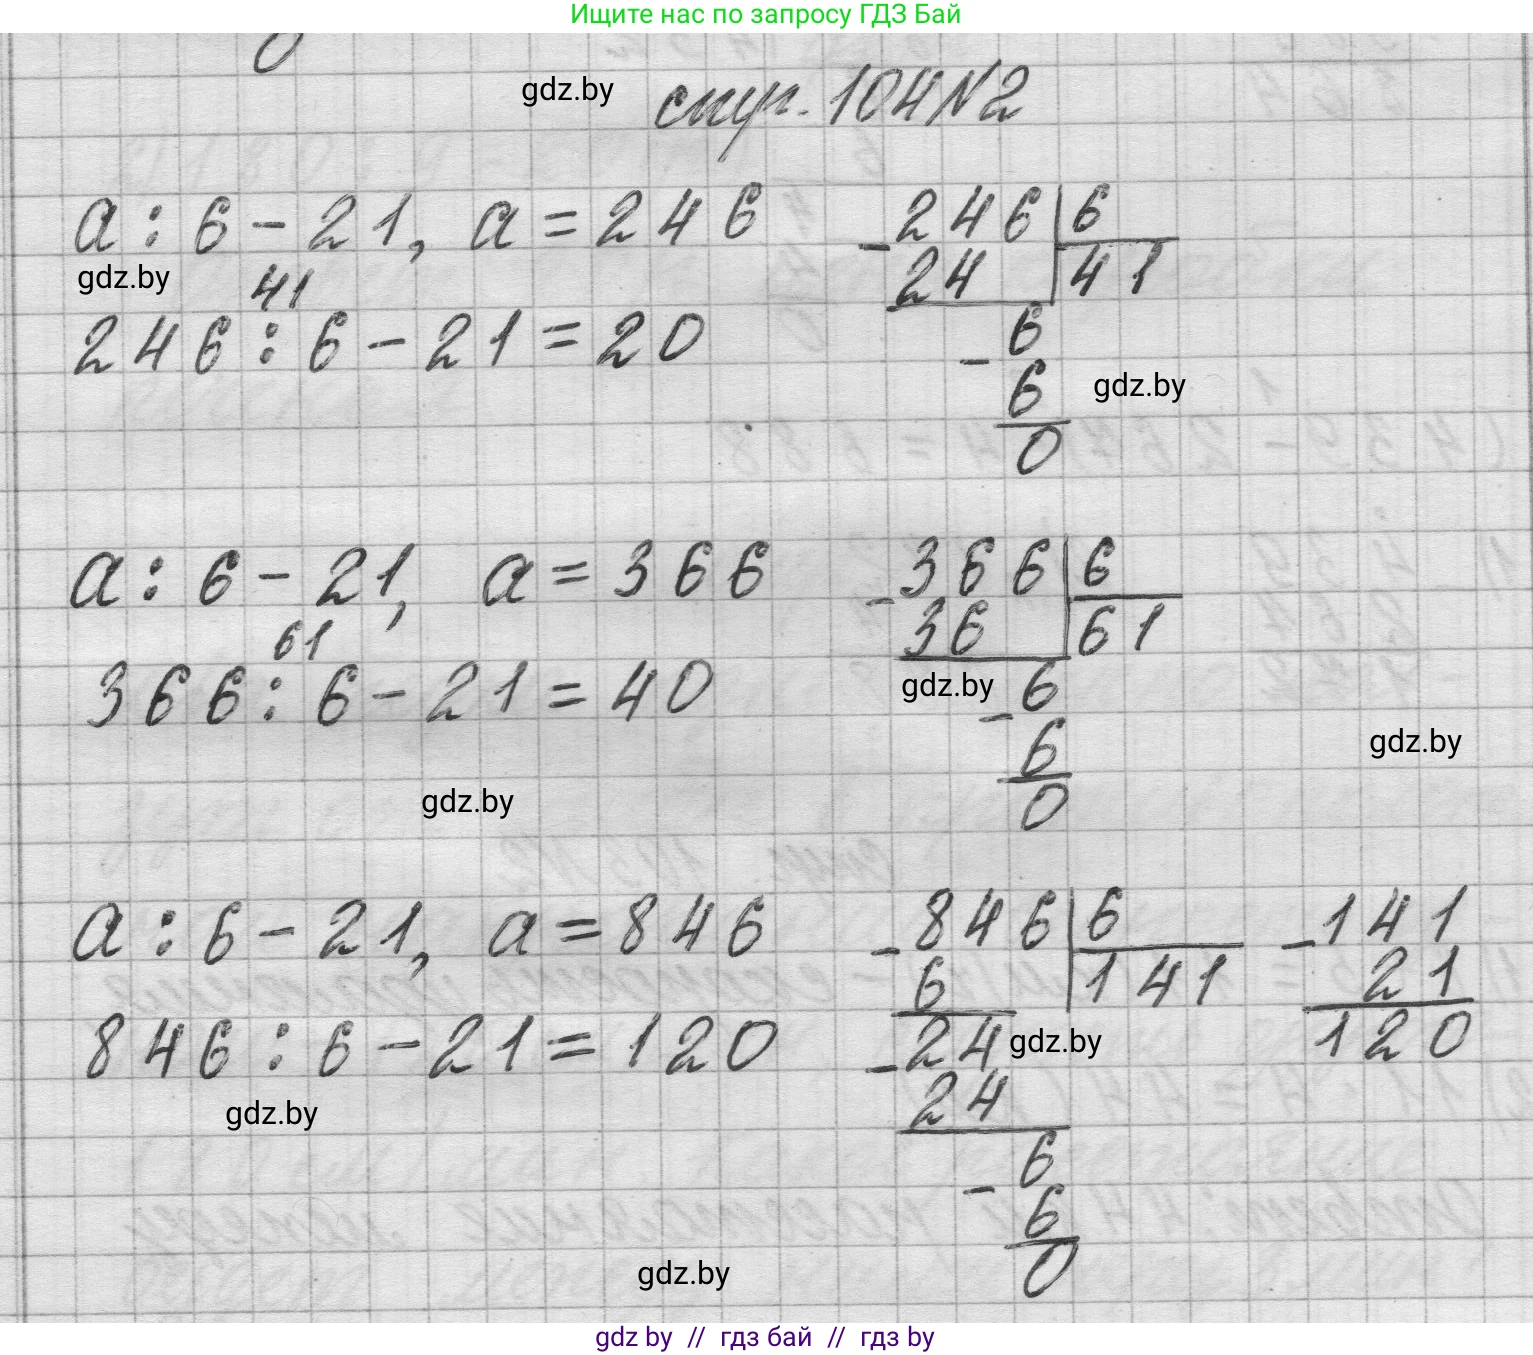 Ищите нас по запросу ГДЗ Бай
gdz.by
стр. 104 №2
a : 6 - 21, a = 246
gdz.by
41
246 : 6 - 21 = 20
- 246 | 6
24 | 41
- 6
6
gdz.by
0
a : 6 - 21, a = 366
61
366 : 6 - 21 = 40
- 366 | 6
36 | 61
gdz.by
- 6
6
0
gdz.by
gdz.by
a : 6 - 21, a = 846
846 : 6 - 21 = 120
gdz.by
- 846 | 6
6 | 141
- 24
gdz.by
24
- 6
6
0
- 141
21
120
gdz.by
gdz by // гдз бай // гдз by